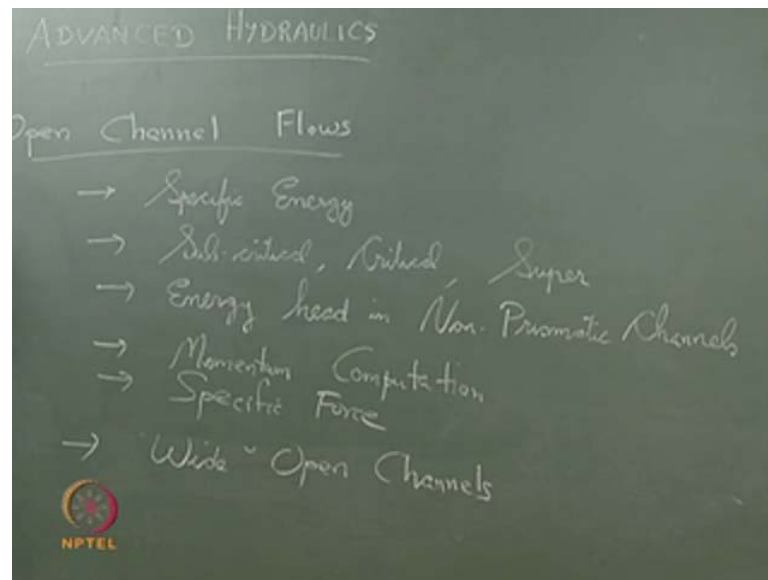 ADVANCED HYDRAULICS
Open Channel Flows
→ Specific Energy
→ Sub-critical, Critical, Super
→ Energy head in Non-Prismatic Channels
→ Momentum Computation
→ Specific Force
→ "Wide" Open Channels
NPTEL